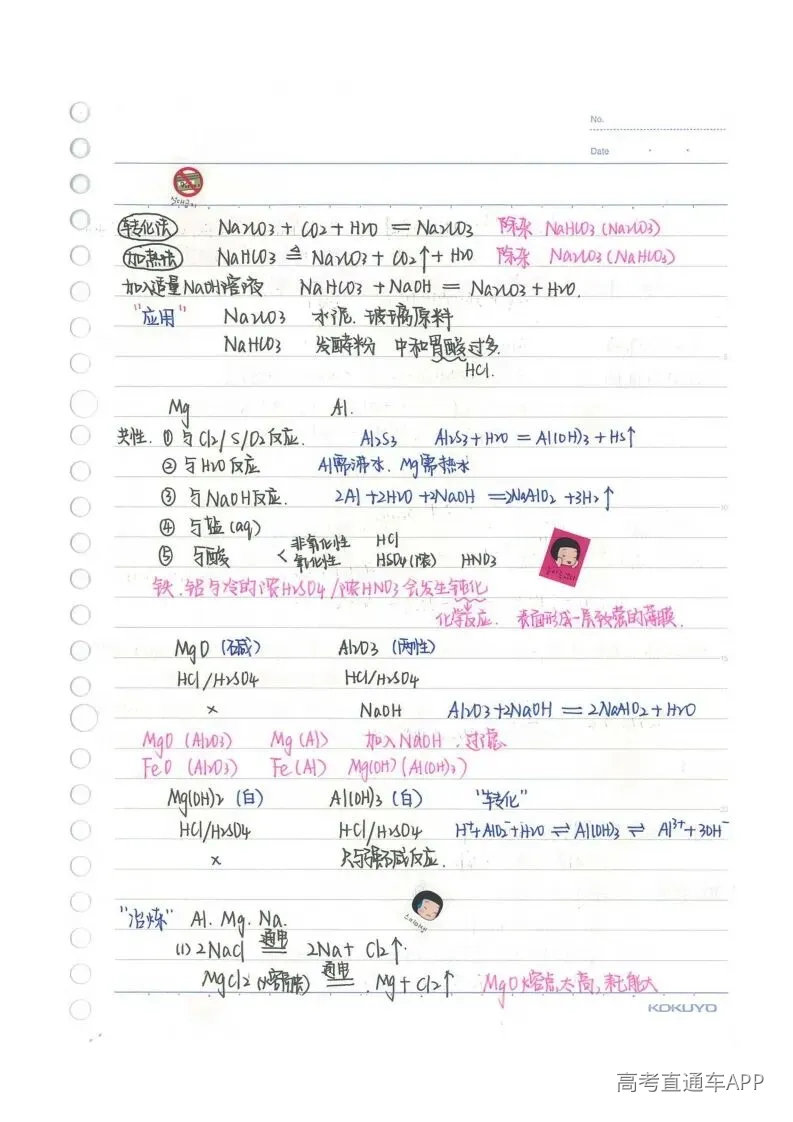 No.
Date
转化法 Na2CO3 + CO2 + H2O = Na2CO3 除杂 NaHCO3 (Na2CO3)
加热法 NaHCO3 ≜ Na2CO3 + CO2↑ + H2O 除杂 Na2CO3 (NaHCO3)
加入适量NaOH溶液 NaHCO3 + NaOH = Na2CO3 + H2O.
"应用" Na2CO3 水泥. 玻璃原料
NaHCO3 发酵粉 中和胃酸过多.
HCl.
Mg Al.
共性. ① 与Cl2/S/O2反应. Al2S3 Al2S3 + H2O = Al(OH)3 + HS↑
② 与H2O反应 Al需沸水. Mg需热水
③ 与NaOH反应. 2Al + 2H2O + 2NaOH = 2NaAlO2 + 3H2↑
④ 与盐(aq)
⑤ 与酸 < 非氧化性 HCl
氧化性 HSO4(浓) HNO3
铁.铝与冷的浓H2SO4/浓HNO3会发生钝化
化学反应. 表面形成一层致密的薄膜.
MgO (碱) Al2O3 (两性)
HCl/H2SO4 HCl/H2SO4
× NaOH Al2O3+2NaOH = 2NaAlO2 + H2O
MgO (Al2O3) Mg(Al) 加入NaOH .过滤
FeO (Al2O3) Fe(Al) Mg(OH) (Al(OH)3)
Mg(OH)2 (白) Al(OH)3 (白) "转化"
HCl/H2SO4 HCl/H2SO4 H⁺+AlO2⁻+H2O ⇌ Al(OH)3 ⇌ Al³⁺+3OH⁻
× 只与强碱反应.
"冶炼" Al. Mg. Na.
(1) 2NaCl 通电 = 2Na + Cl2↑.
MgCl2 (熔融) 通电 = Mg + Cl2↑ MgO熔点太高,耗能大
KOKUYO
高考直通车APP